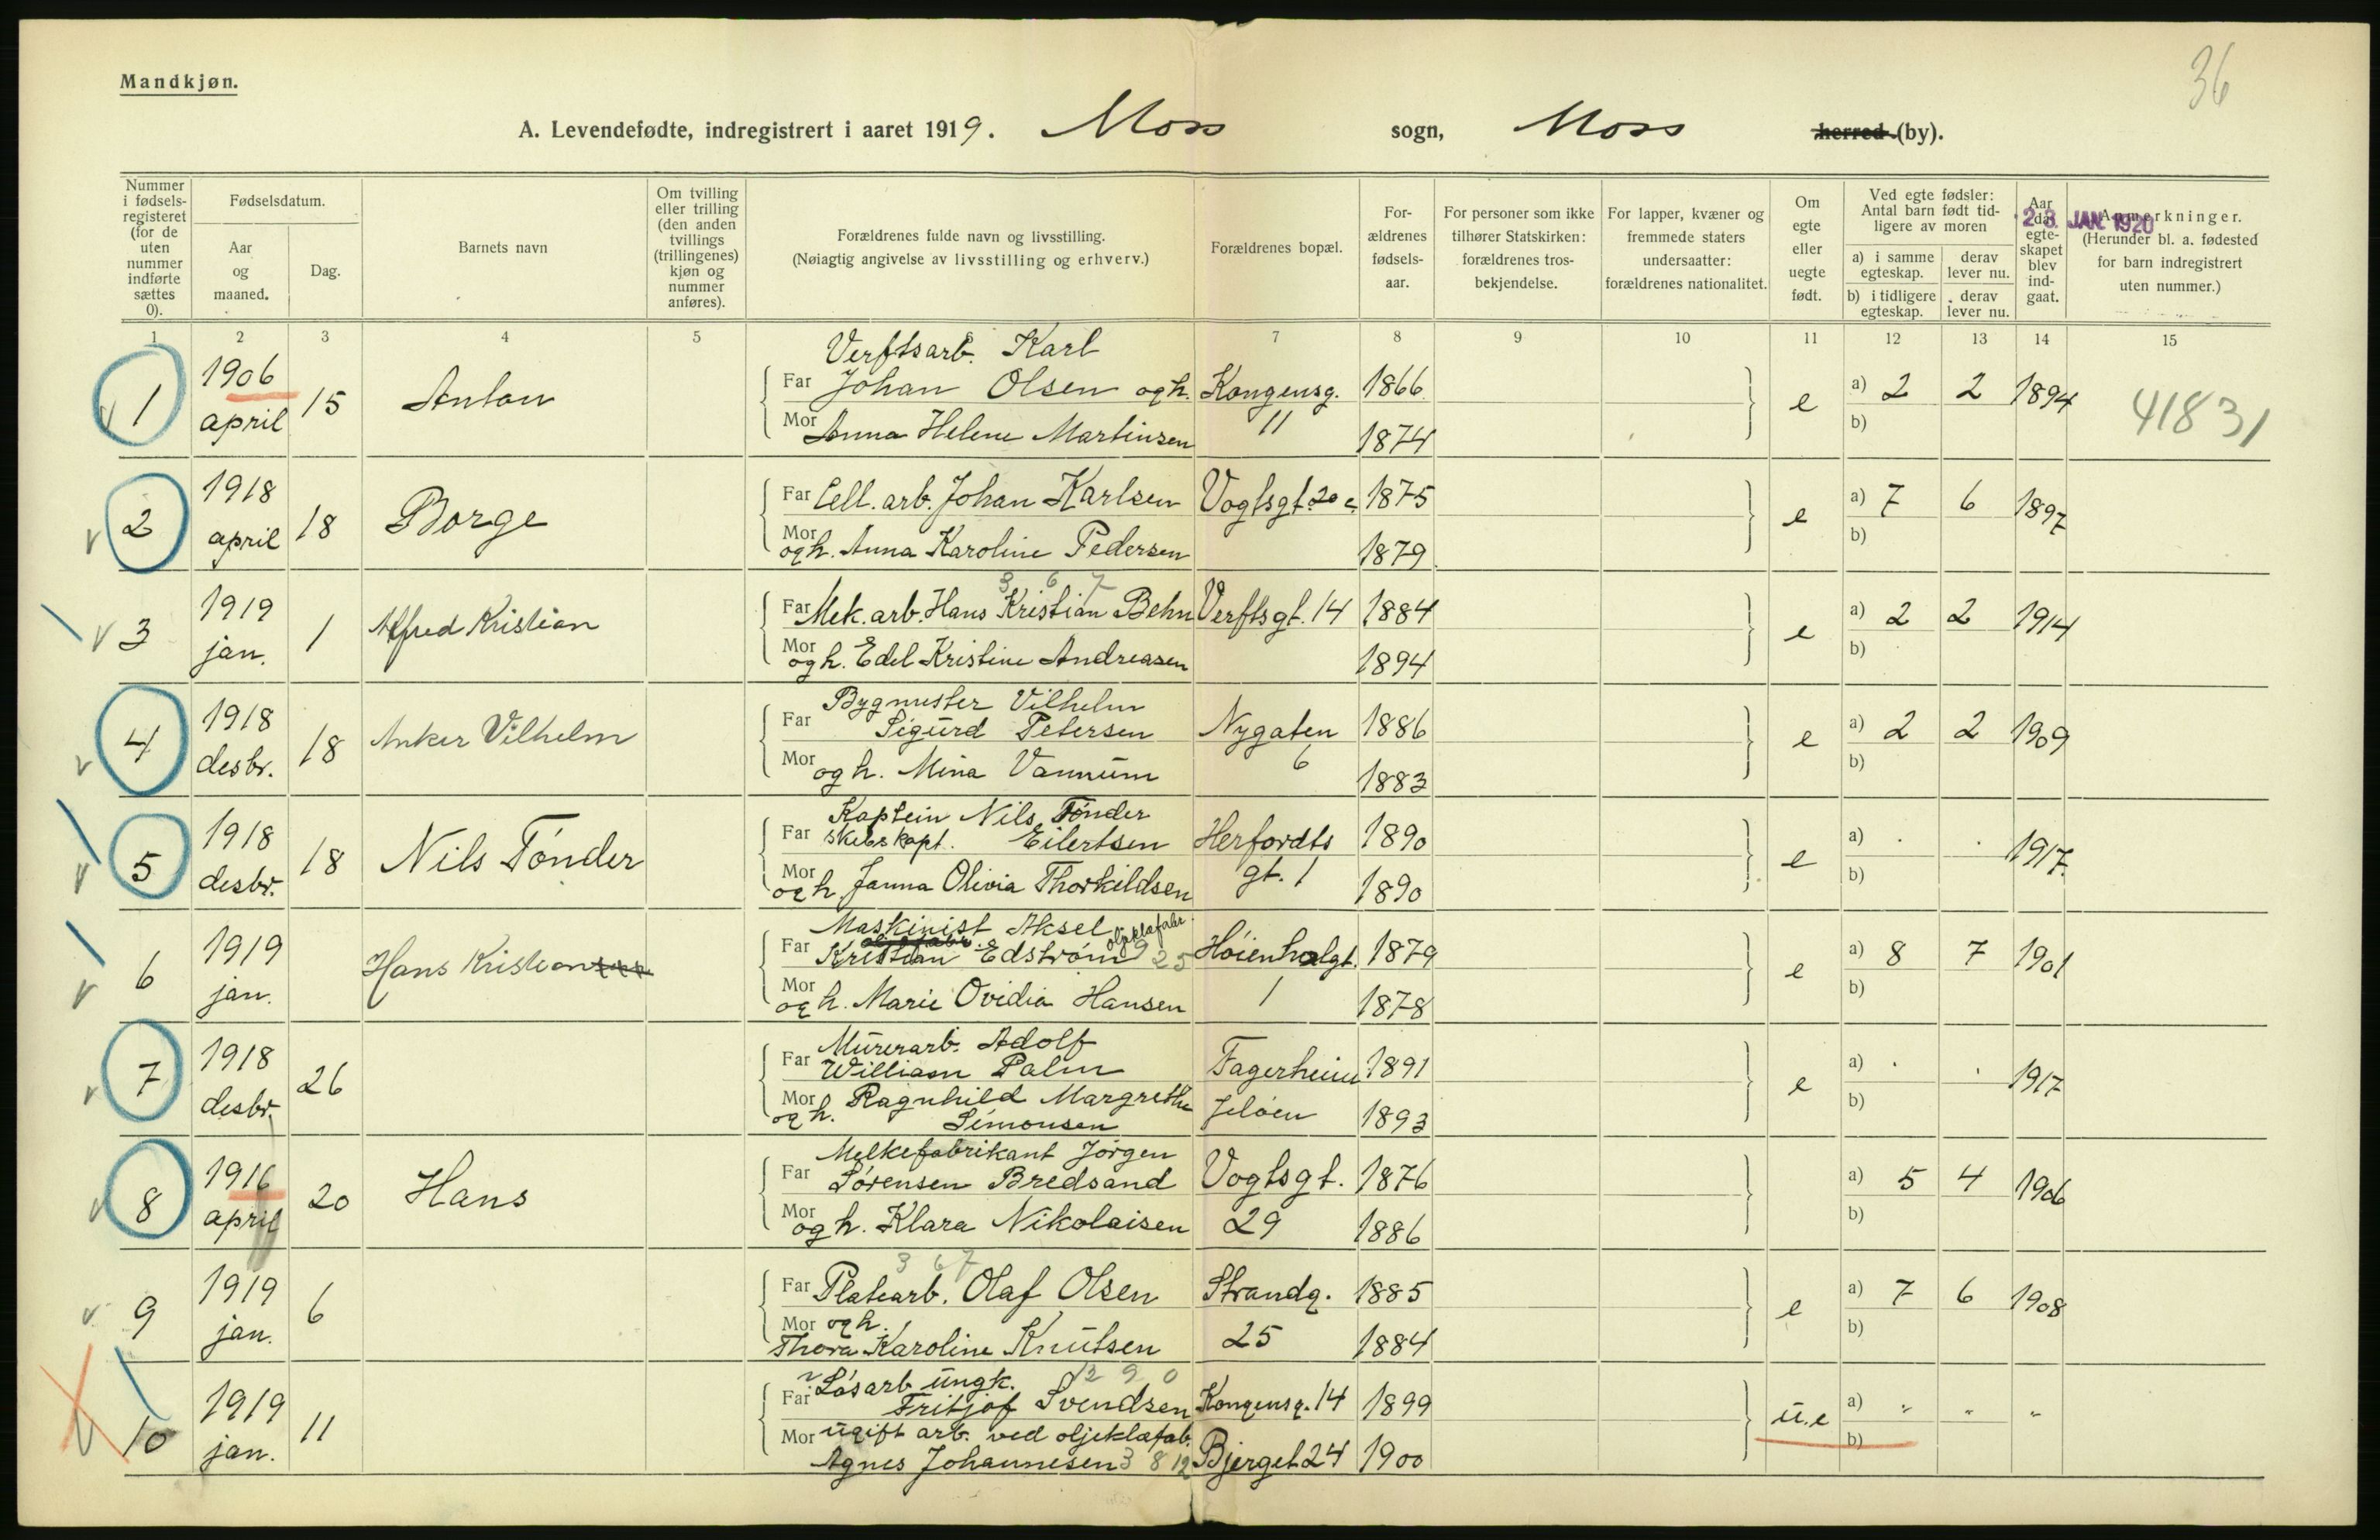 36
Mandkjøn.
A. Levendefødte, indregistrert i aaret 1919. Moss sogn, Moss herred (by).
Nummer i fødsels-registeret (for de uten nummer indførte sættes 0).
Fødselsdatum.
Aar og maaned.
Dag.
Barnets navn
Om tvilling eller trilling (den anden tvillings (trillingenes) kjøn og nummer anføres).
Forældrenes fulde navn og livsstilling.
(Nøiagtig angivelse av livsstilling og erhverv.)
Forældrenes bopæl.
For-ældrenes fødsels-aar.
For personer som ikke tilhører Statskirken: forældrenes tros-bekjendelse.
For lapper, kvæner og fremmede staters undersaatter: forældrenes nationalitet.
Om egte eller uegte født.
Ved egte fødsler: Antal barn født tid-ligere av moren
a) i samme egteskap. derav lever nu.
b) i tidligere egteskap. derav lever nu.
Aar da egte-skapet blev ind-gaat.
Anmerkninger.
(Herunder bl. a. fødested for barn indregistrert uten nummer.)
23 JAN. 1920
1 2 3 4 5 6 7 8 9 10 11 12 13 14 15
Verftsarb. Karl
1 1906 april 15 Anton Far Johan Olsen og h. Kongensg. 11 1866 e a) 2 2 1894 41831
Mor Anna Helene Martinsen 1874 b)
2 1918 april 18 Borge Far Cell. arb. Johan Karlsen Vogtsgt. 20 c. 1875 e a) 7 6 1897
Mor og h. Anna Karoline Pedersen 1879 b)
3 6 7
3 1919 jan. 1 Alfred Kristian Far Mek. arb. Hans Kristian Behn Verftsgt. 14 1884 e a) 2 2 1914
Mor og h. Edel Kristine Andreasen 1894 b)
Bygmester Vilhelm
4 1918 desbr. 18 Anker Vilhelm Far Sigurd Petersen Nygaten 6 1886 e a) 2 2 1909
Mor og h. Mina Vannum 1883 b)
Kaptein Nils Tønder
5 1918 desbr. 18 Nils Tónder Far skibskapt. Eilertsen Herfordts gt. 1 1890 e a) . . 1917
Mor og h. Janna Olivia Thorkildsen 1890 b)
Maskinist Aksel oljeklæfabr.
6 1919 jan. Hans Kristian Far Kristian Edström 9 25 Hóienhalgt. 1 1879 e a) 8 7 1901
Mor og h. Marie Ovidia Hansen 1878 b)
Murerarb. Adolf
7 1918 desbr. 26 Far William Palm Fagerheim 1891 e a) . . 1917
Mor og h. Ragnhild Margrethe Simonsen Jelóen 1893 b)
Melkefabrikant Jórgen
8 1916 april 20 Hans Far Sórensen Bredsand Vogtsgt. 29 1876 e a) 5 4 1906
Mor og h. Klara Nikolaisen 1886 b)
3 6 7
9 1919 jan. 6 Far Platearb. Olaf Olsen Strandg. 25 1885 e a) 7 6 1908
Mor og h. Thora Karoline Knutsen 1884 b)
Lósarb. ungk. 12 9 0
10 1919 jan. 11 Far Fritjof Svendsen Kongensg. 14 1899 u.e a) " " "
Mor ugift arb. ved oljeklæfab. b)
Agnes Johannesen 3 8 12 Bjerget 24 1900